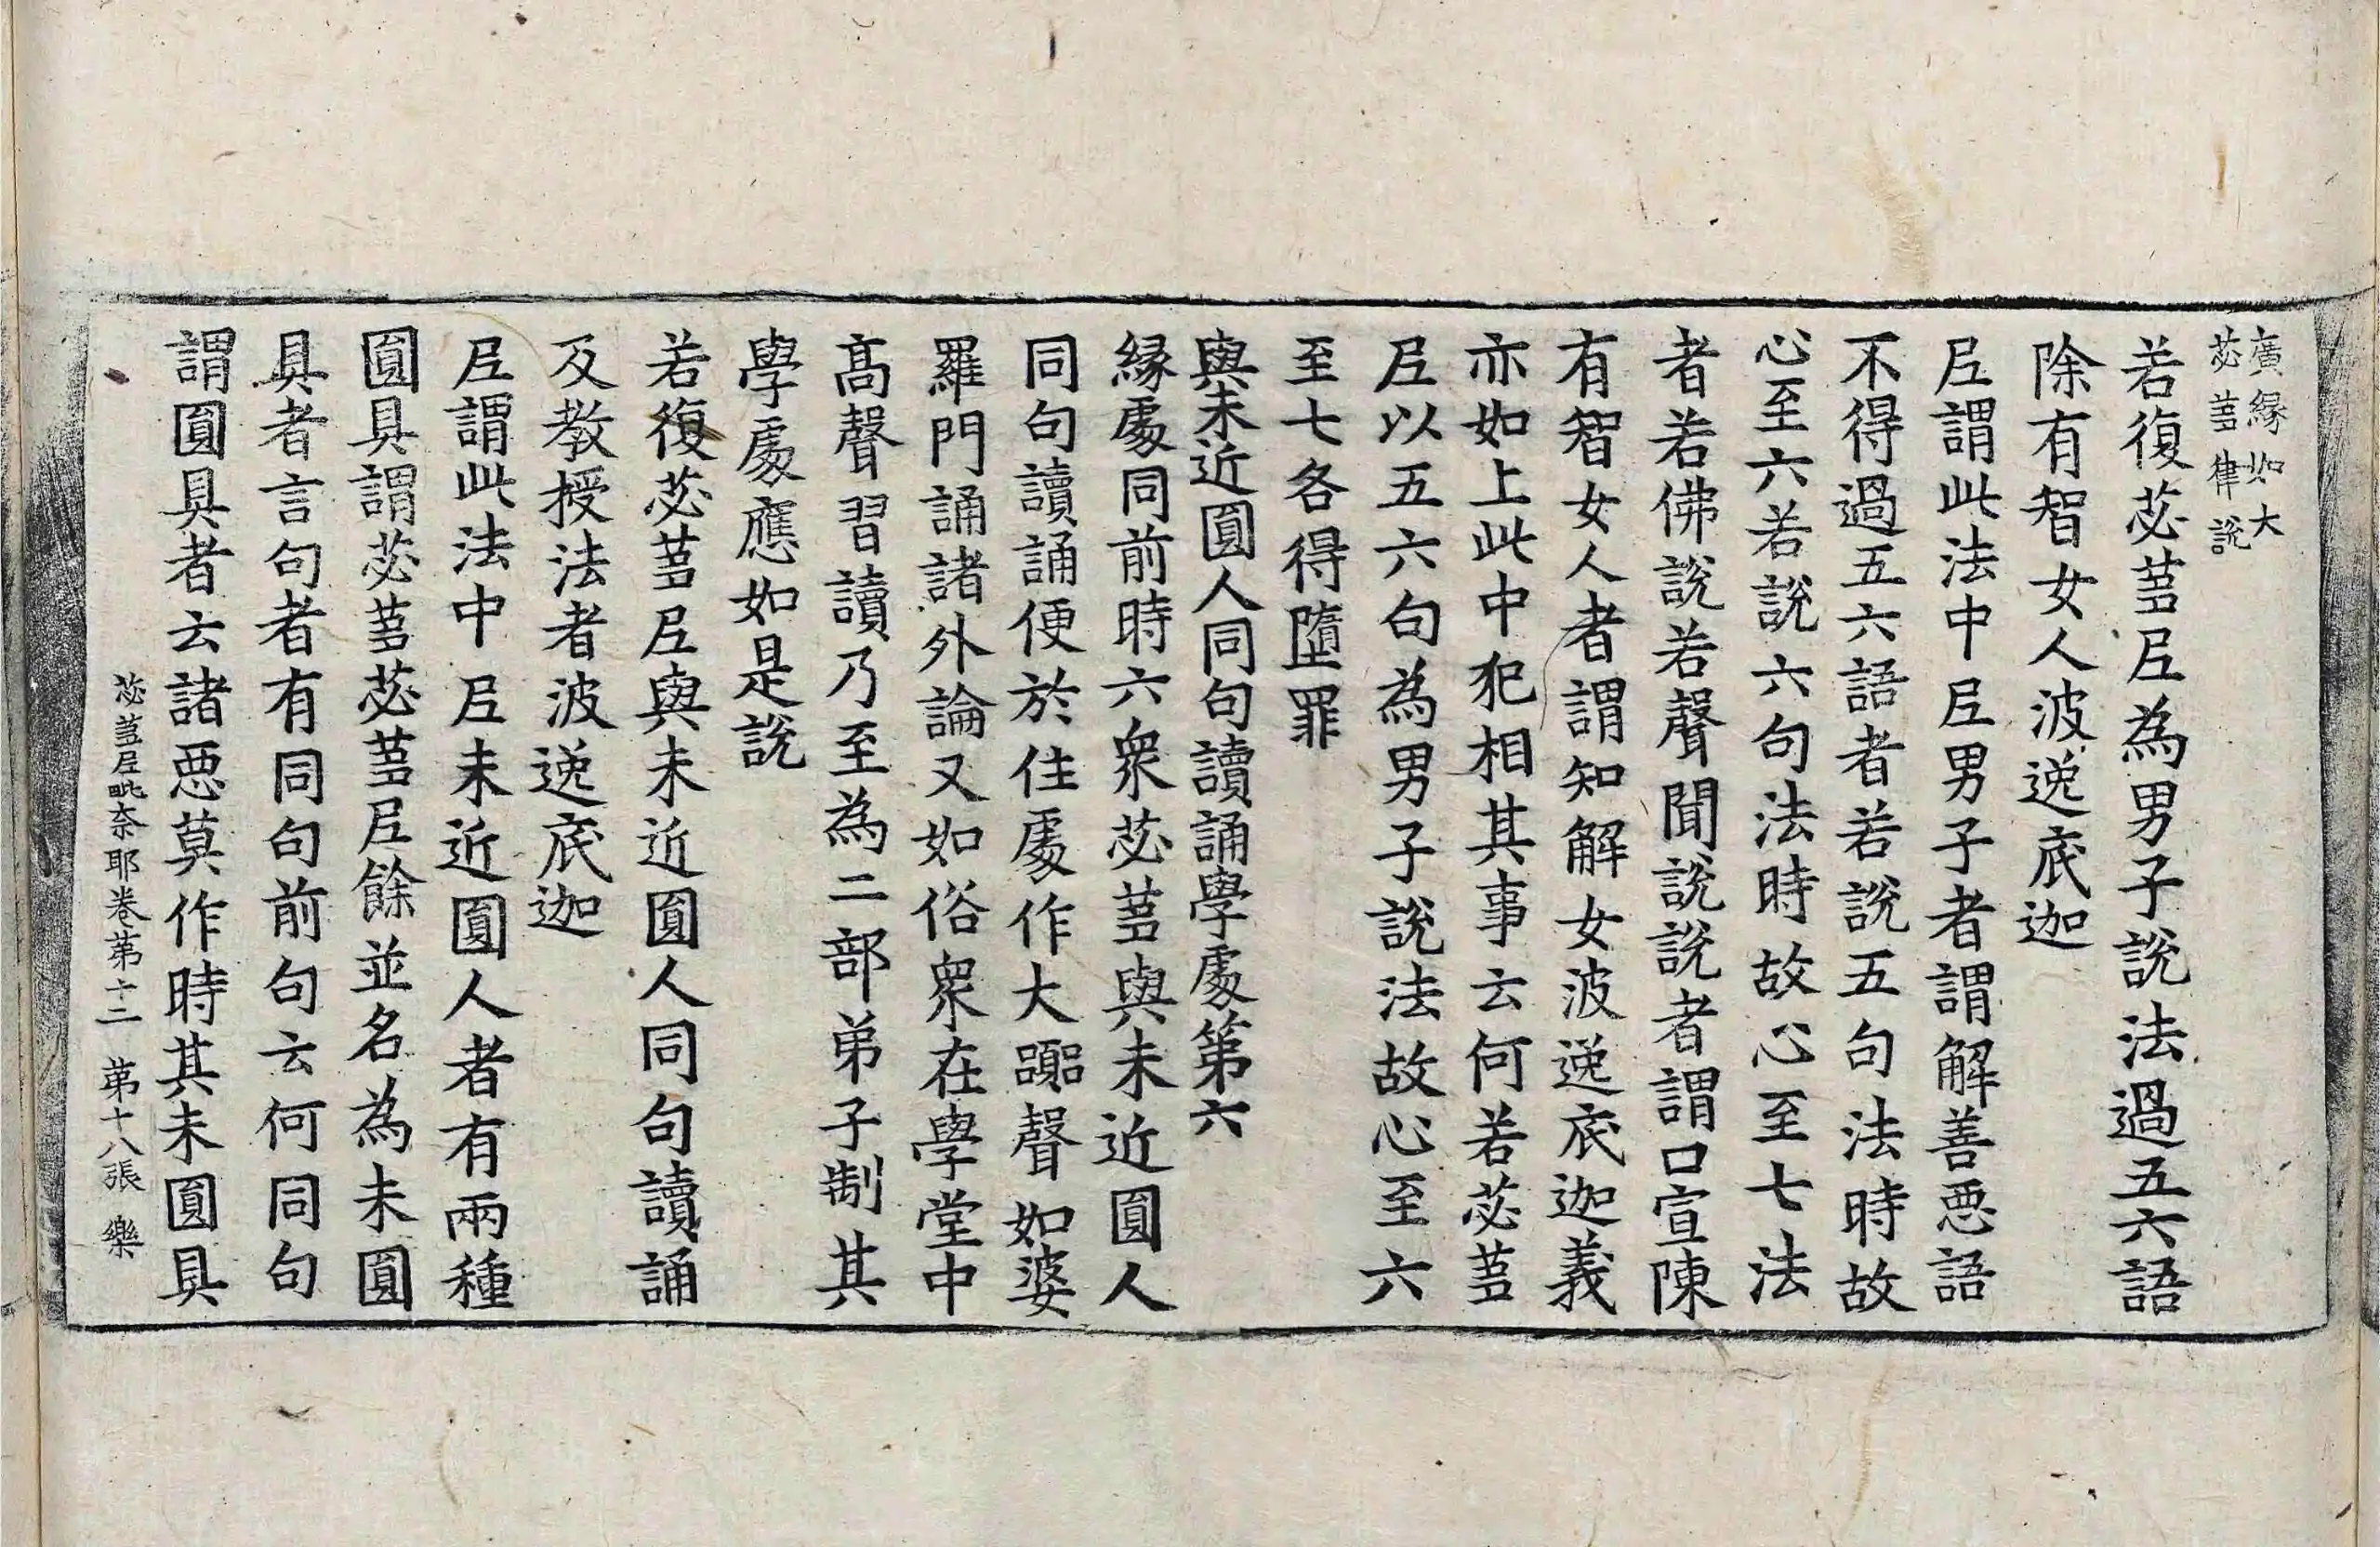 廣縁如大
苾蒭律説
若復苾蒭尼為男子說法過五六語
除有智女人波逸底迦
尼謂此法中尼男子者謂解善惡語
不得過五六語者若說五句法時故
心至六若說六句法時故心至七法
者若佛說若聲聞說說者謂口宣陳
有智女人者謂知解女波逸底迦義
亦如上此中犯相其事云何若苾蒭
尼以五六句為男子說法故心至六
至七各得墮罪
與未近圓人同句讀誦學處第六
縁處同前時六衆苾蒭與未近圓人
同句讀誦便於住處作大嚻聲如婆
羅門誦諸外論又如俗衆在學堂中
髙聲習讀乃至為二部弟子制其
學處應如是說
若復苾蒭尼與未近圓人同句讀誦
及教授法者波逸底迦
尼謂此法中尼未近圓人者有兩種
圓具謂苾蒭苾蒭尼餘並名為未圓
具者言句者有同句前句云何同句
謂圓具者云諸惡莫作時其未圓具
苾蒭尼毗奈耶卷第十二　第十八張　樂